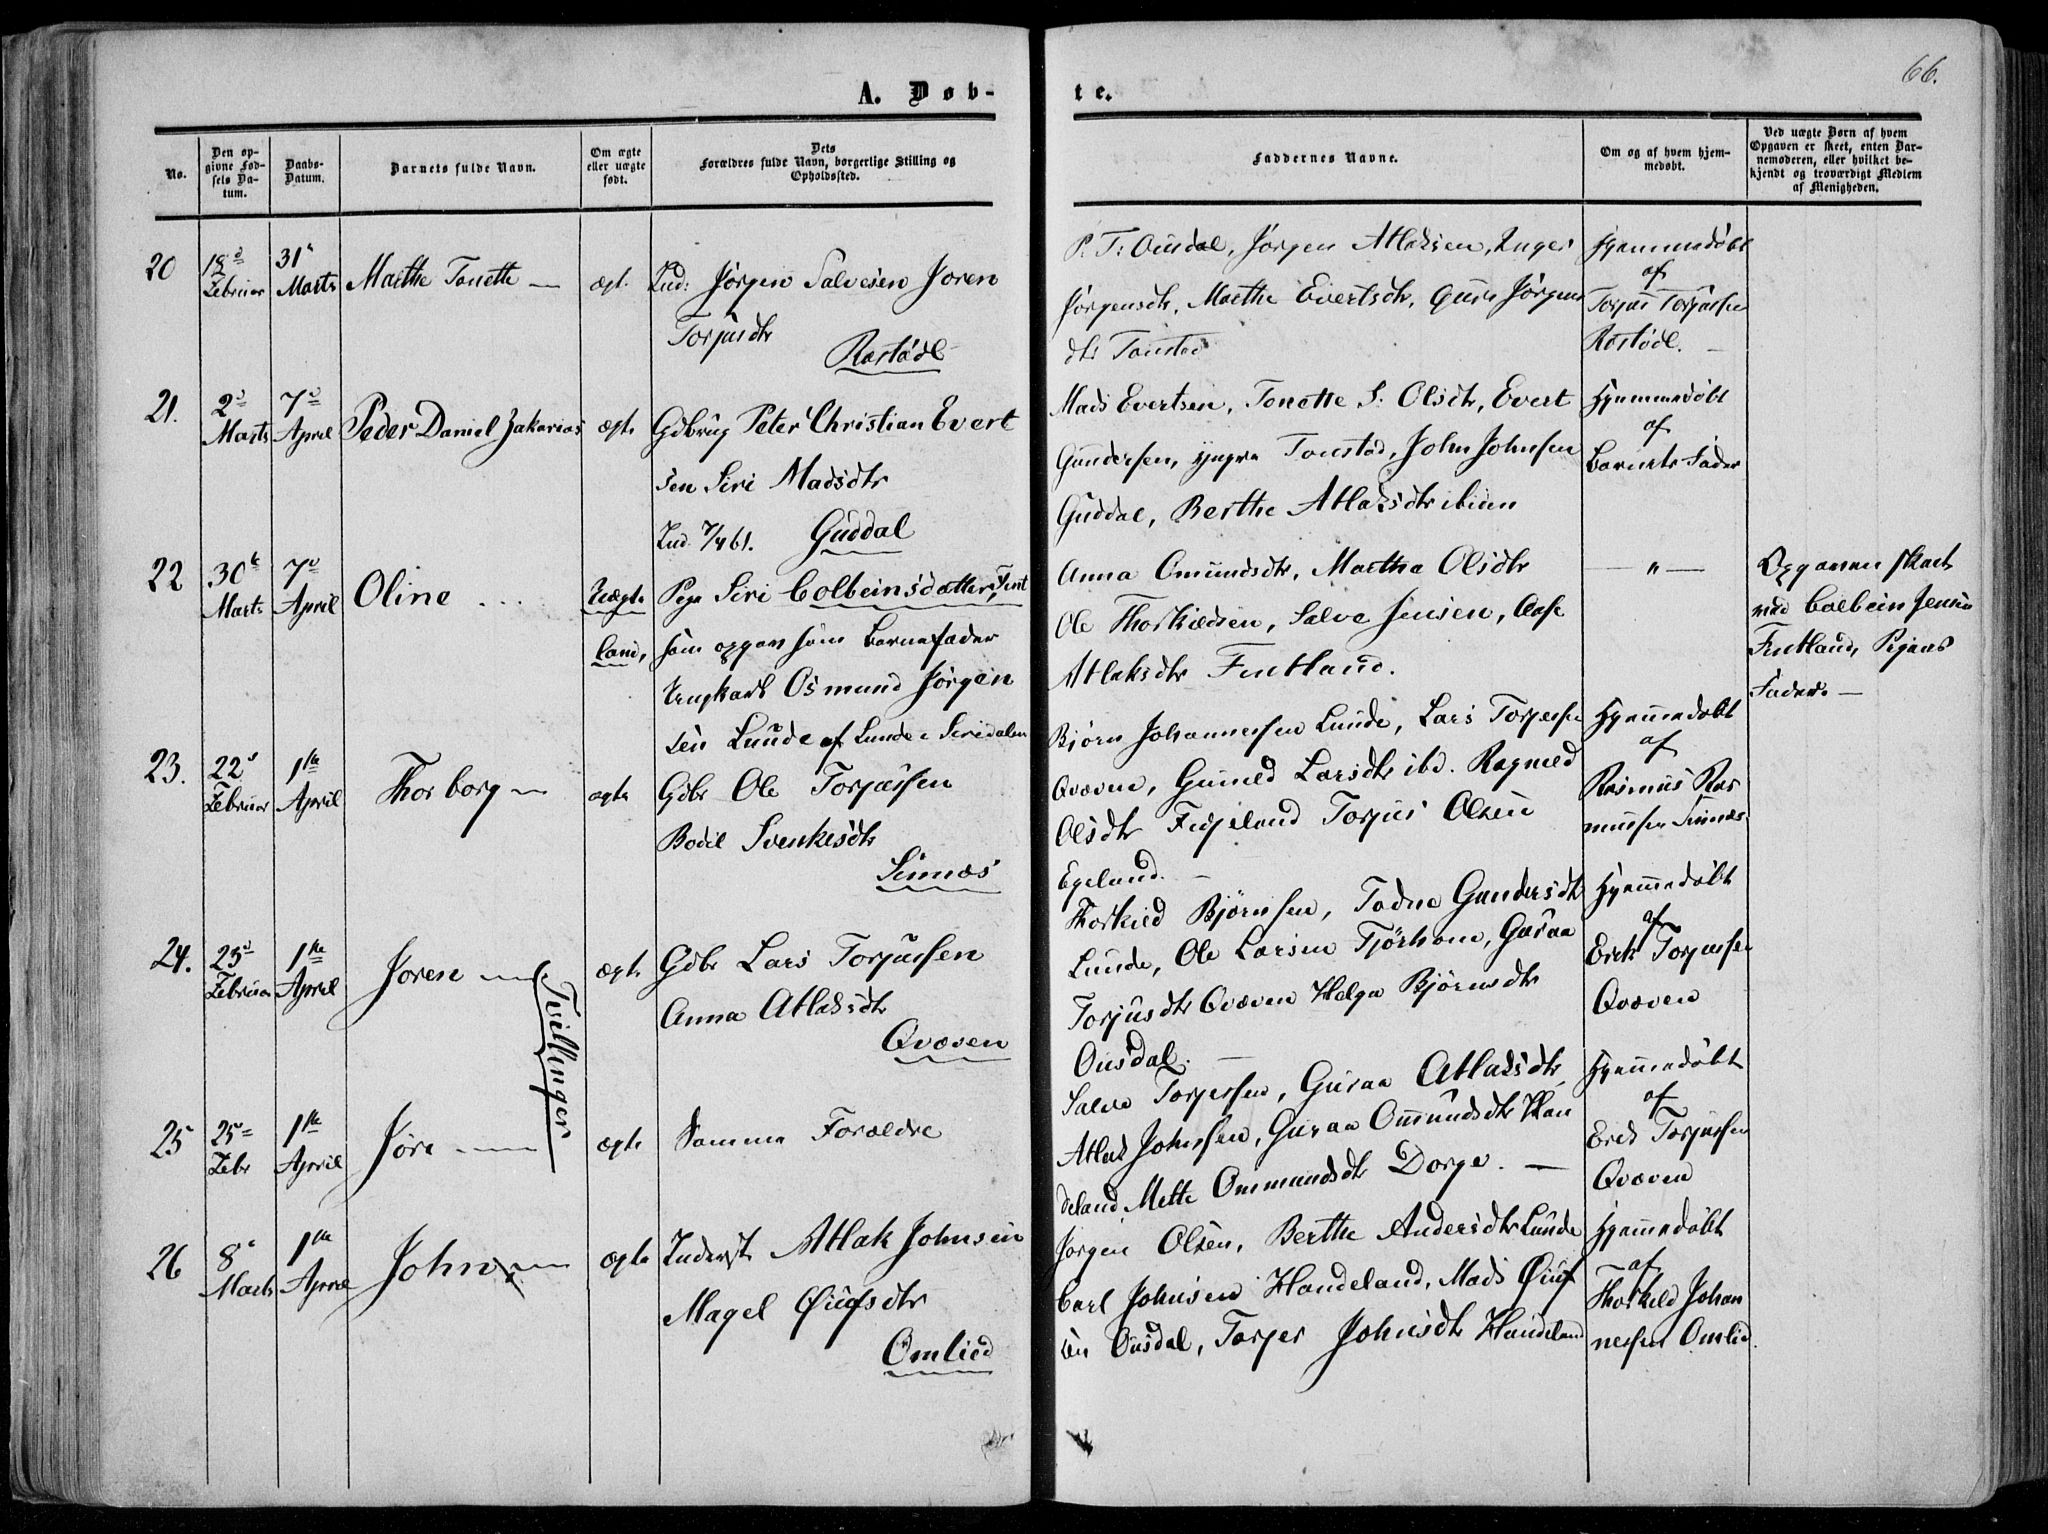 66.
A. Døb-
te.
No.
Den op-
givne Fød-
sels Da-
tum.
Daabs-
Datum.
Barnets fulde Navn.
Om ægte
eller uægte
født.
Dets
Forældres fulde Navn, borgerlige Stilling og
Opholdssted.
Faddernes Navne.
Om og af hvem hjem-
medøbt.
Ved uægte Børn af hvem
Opgaven er skeet, enten Bar-
nemoderen, eller hvilket be-
kjendt og troværdigt Medlem
af Menigheden.
20
18d
Februar
31te
Marts
Marthe Tonette
ægt.
Ind: Jørgen Salvesen Joren
Torjusdtr
Rostødl
P. T: Ousdal, Jørgen Atlaksen, Inger
Jørgensdtr, Marthe Evertsdtr, Guro Jørgens
dtr Tonstad
Hjemmedøbt
af
Torjus Torjussen
Rostødl.
21.
2d
Marts
7d
April
Peder Daniel Zakarias
ægte
Gdbrug Peter Christian Evert
sen Siri Madsdtr
Ind. 7/4 61. Guddal
Mads Evertsen, Tonette S: Olsdtr, Evert
Gundersen, yngre Tonstad, John Johnsen
Guddal, Berthe Atlaksdtr ibidem
Hjemmedøbt
af
Barnets Fader
22
30te
Marts
7d
April
Oline
Uægte
Pige Siri Colbeinsdatter, Fint
land, som opgav som Barnefader
Ungkarl Osmund Jørgen
sen Lunde af Lunde i Siredalen
Anna Omundsdtr, Martha Olsdtr
Ole Thorkildsen, Salve Jensen, Aase
Atlaksdtr Fintland.
— " —
Opgaven skeet
ved Colbein Jensen
Fintland, Pigens
Fader. —
23.
22d
Februar
1ste
April
Thorborg
ægte
Gdbr Ole Torjussen
Bodil Svenkesdtr
Sinnæs
Bjørn Johannessen Lunde, Lars Torjussen
Qvæven, Gunild Larsdtr ibd. Ragnild
Olsdtr Fidjeland Torjus Olsen
Egeland.
Hjemmedøbt
af
Rasmus Ras
mussen Sinnæs
24.
25d
Februar
1ste
April
Joren
Tvillinger
ægte
Gdbr Lars Torjussen
Anna Atlaksdtr
Qvæven
Thorkild Bjørnsen, Todne Gundersdtr
Lunde, Ole Larsen Tjørhom, Guraa
Torjusdtr Qvæven Helga Bjørnsdtr
Ousdal.
Hjemmedøbt
af
Erik Torjussen
Qvæven
25
25d
Febr
1ste
April
Jøre
ægte
Samme Forældre
Salve Torjussen, Guraa Atlaksdtr,
Atlak Johnsen, Guraa Omundsdtr Han
deland, Mette Ommundsdtr Dorge. —
Hjemmedøbt
af
Erik Torjussen
Qvæven
26
8d
Marts
1ste
April
John
ægte
Inderst Atlak Johnsen
Magel Øiufsdtr
Omlid
Jørgen Olsen, Berthe Andersdtr Lunde
Carl Johnsen Handeland, Mads Øiuf
sen Ousdal, Torjer Johnsdtr Handeland
Hjemmedøbt
af
Thorkild Johan
nessen Omlid.